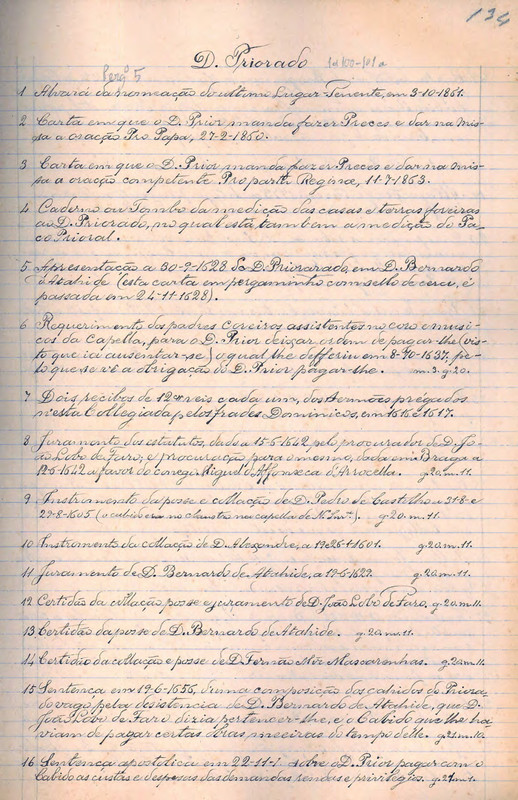 134
D. Priorado
Perg.º 5
1 Alvará da nomeação do ultimo Lugar-Tenente, em 3-10-1861.
2 Carta em que o D. Prior manda fazer Preces e dar na mis-
sa a oração Pro Papa, 27-2-1860.
3 Carta em que o D. Prior manda fazer Preces e dar na mis-
sa a oração competente Pro partu Reginæ, 11-7-1863.
4 Caderno ou Tombo da medição das casas e terras foreiras
ao D. Priorado, no qual está tambem a medição do Pa-
ço Prioral.
5 Apresentação a 30-9-1628 do D. Priorado, em D. Bernardo
d'Atahide (esta carta em pergaminho com sello de cera, é
passada em 24-11-1628).
6 Requerimento dos padres Coreiros assistentes no coro e musi-
cos da Capella, para o D. Prior deixar ordem de pagar-lhe (vis-
to que ia ausentar-se) o qual lhe defferiu em 8-10-1637, pe-
lo que se vê a obrigação do D. Prior pagar-lhe. m. 3. g. 20.
7 Dois recibos de reis cada um, dos sermões prégados
n'esta Collegiada, pelos frades Dominicos, em 1616 e 1617.
8 Juramento dos estatutos, dado a 15-6-1642 pelo procurador de D. Jo-
ão Lobo de Faro; e procuração para o mesmo, dada em Braga a
12-6-1642 a favor do conego Miguel d'Affonseca d'Arrocella. g. 20. m. 11.
9 Instrumento da posse e collação de D. Pedro de Castilho a 31-8 e
29-8-1605 (o cabido era no claustro na capella de N. ). g. 20. m. 11.
10 Instrumento da collação de D. Alexandre, a 19 e 26-1-1601. g. 20. m. 11.
11 Juramento de D. Bernardo de Atahide, a 19-6-1629. g. 20. m. 11.
12 Certidão da collação posse e juramento de D. João Lobo de Faro, g. 20. m. 11.
13 Certidão da posse de D. Bernardo de Atahide. g. 20. m. 11.
14 Certidão da collação e posse de D. Fernão Miz Mascarenhas. g. 20. m. 11.
15 Sentença em 19-6-1656, d'uma composição dos cahidos do Priora-
do vago pela desistencia de D. Bernardo de Atahide, que D.
João Lobo de Faro dizia pertencer-lhe, e o Cabido que lhe ha-
viam de pagar certas obras meeiras do tempo delle. g. 21. m. 10.
16 Sentença apostolica em 22-11- sobre o D. Prior pagar com o
Cabido as custas e despesas das demandas rendas e privilegios. g. 21. m. 1.